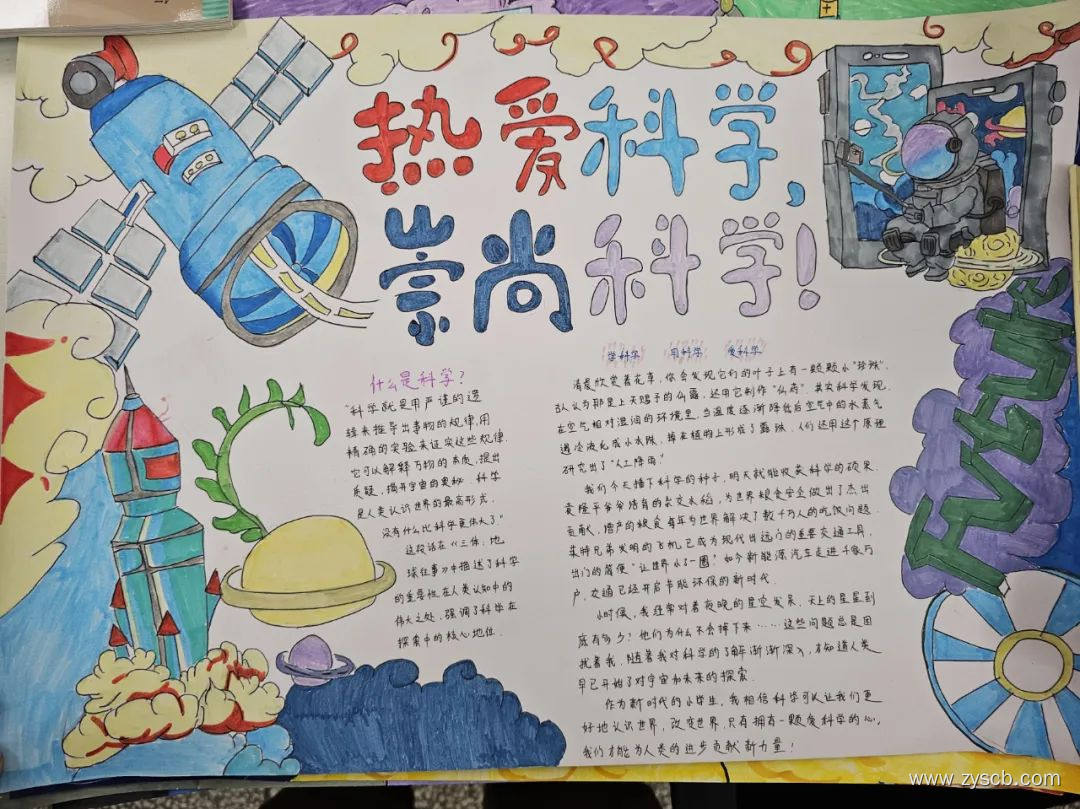 热爱科学,
崇尚科学!
什么是科学?
"科学就是用严谨的逻
辑来推导出事物的规律,用
精确的实验来证实这些规律.
它可以解释万物的本质,提出
质疑,揭开宇宙的奥秘.科学
是人类认识世界的最高形式.
没有什么比科学更伟大了"
这段话在《三体:地
球往事》中描述了科学
的重要性在人类认知中的
伟大之处.强调了科学在
探索中的核心地位.
学科学 用科学 爱科学
清晨欣赏着花草,你会发现它们的叶子上有一颗颗小"珍珠".
古人认为那是上天赐予的仙露.还用它制作"仙药".其实科学发现,
在空气相对湿润的环境里,当温度逐渐降低后空气中的水蒸气
遇冷液化成小水珠,掉在植物上形成了露珠.人们还用这个原理
研究出了"人工降雨."
我们今天播下科学的种子,明天就能收获科学的硕果.
袁隆平爷爷培育的杂交水稻,为世界粮食安全做出了杰出
贡献,增产的粮食每年为世界解决了数千万人的吃饭问题.
莱特兄弟发明的飞机已成为现代出远门的重要交通工具,
出门的简便"让世界小了一圈!如今新能源汽车走进千家万
户,交通已经开启低碳环保的新时代.
小时候,我经常对着夜晚的星空发呆.天上的星星到
底有多少?他们为什么不会掉下来……这些问题总是困
扰着我.随着我对科学的了解渐渐深入,才知道人类
早已开始了对宇宙和未来的探索.
作为新时代的小学生,我相信科学可以让我们更
好地认识世界,改变世界.只有拥有一颗爱科学的心,
我们才能为人类的进步贡献新力量!
www.zyscb.com